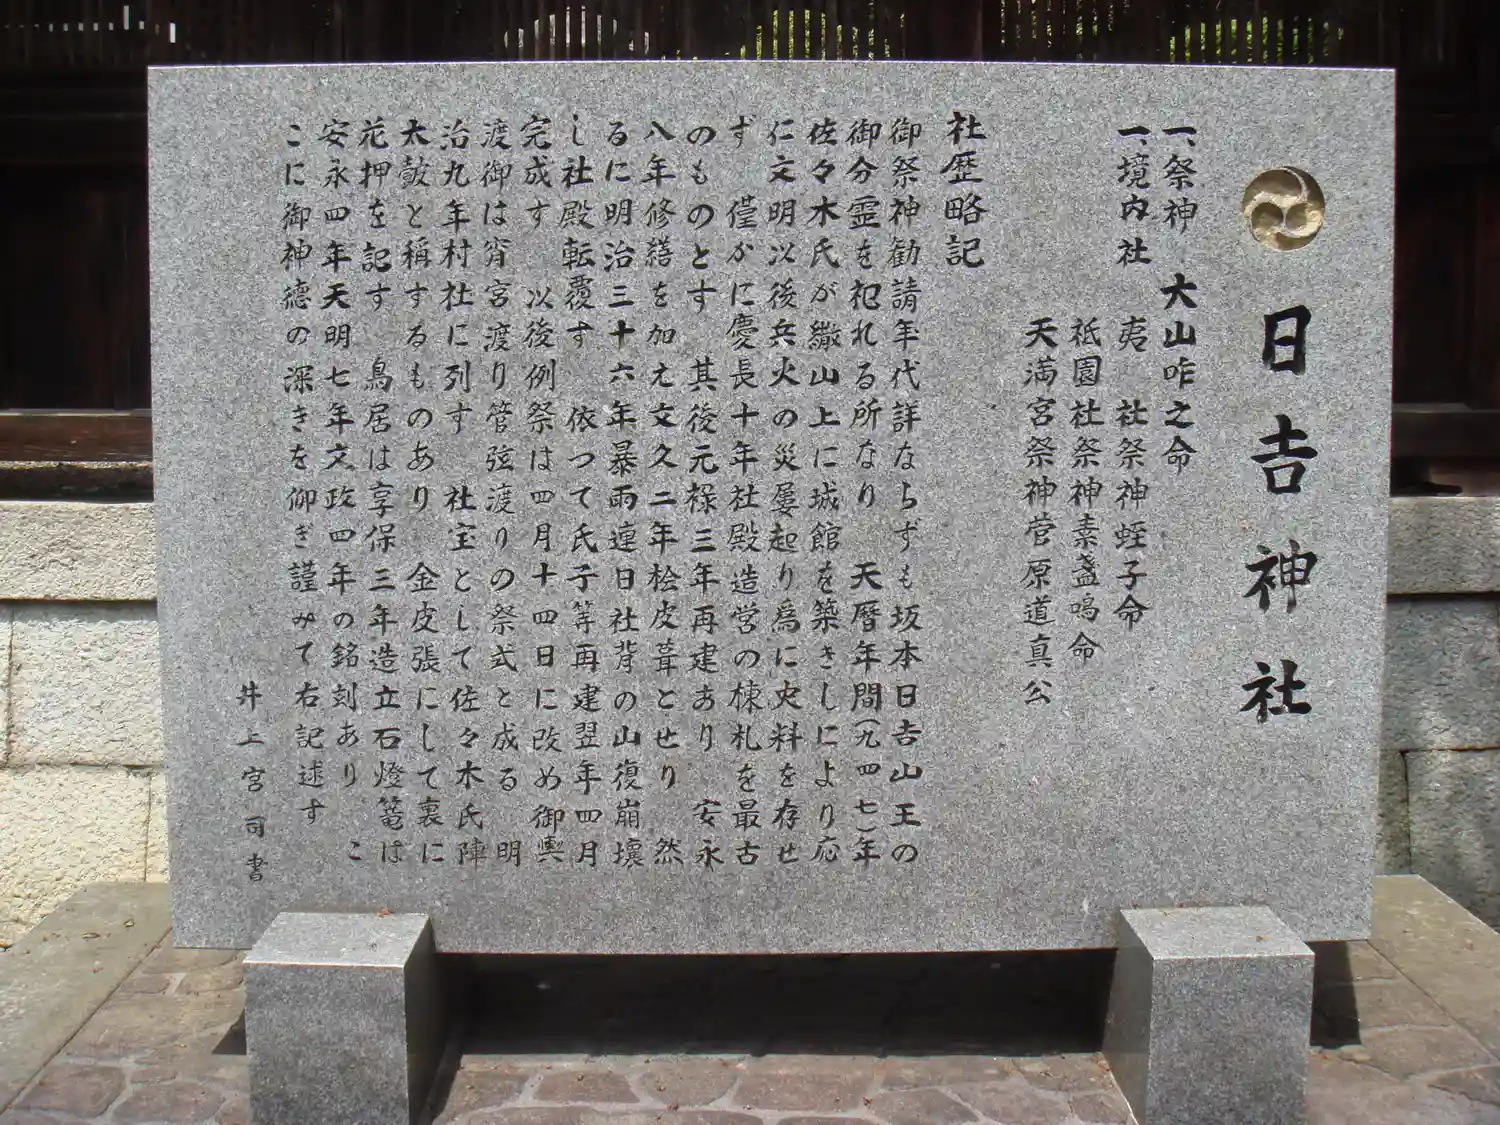 日吉神社
一、祭神 大山咋之命
一、境内社 夷 社祭神蛭子命
祗園社祭神素盞鳴命
天満宮祭神菅原道真公
社歴略記
御祭神勧請年代詳ならずも坂本日吉山王の
御分霊を祀れる所なり 天暦年間(九四七)年
佐々木氏が繖山上に城館を築きしにより応
仁文明以後兵火の災屡起り爲に史料を存せ
ず 僅かに慶長十年社殿造営の棟札を最古
のものとす 其後元禄三年再建あり 安永
八年修繕を加え文久二年桧皮葺とせり 然
るに明治三十六年暴雨連日社背の山復崩壊
し社殿転覆す 依つて氏子等再建翌年四月
完成す 以後例祭は四月十四日に改め御輿
渡御は宵宮渡り管弦渡りの祭式と成る 明
治九年村社に列す 社宝として佐々木氏陣
太鼓と稱するものあり 金皮張にして裏に
花押を記す 鳥居は享保三年造立石燈篭は
安永四年天明七年文政四年の銘刻あり こ
こに御神徳の深きを仰ぎ謹みて右記述す
井上宮司書